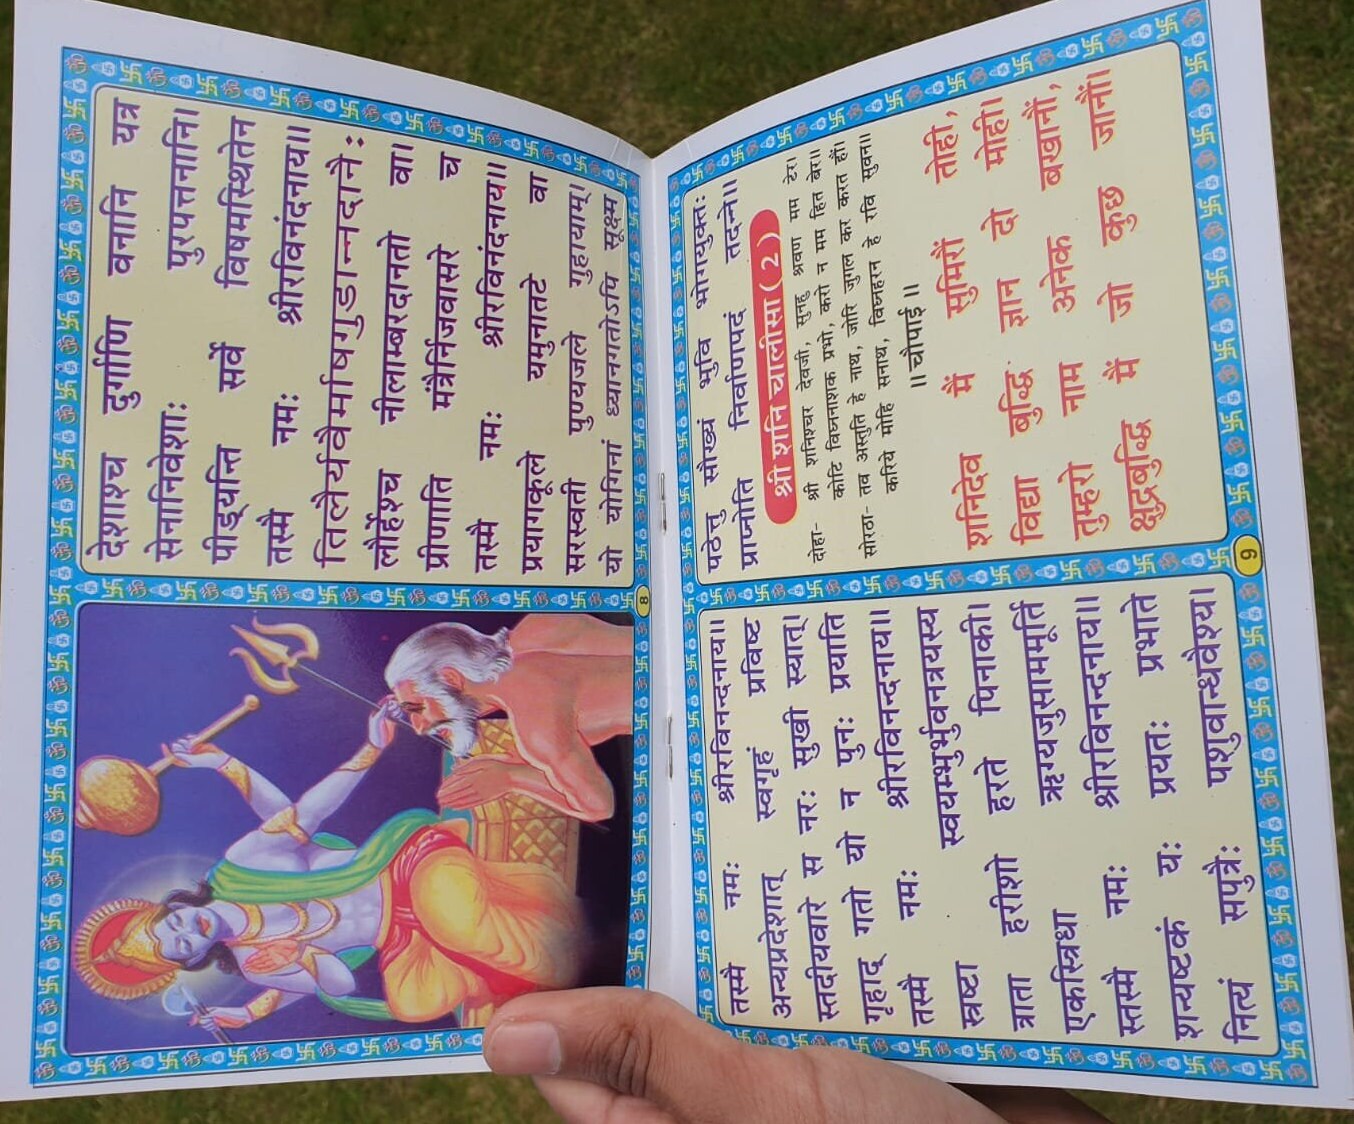 देशाश्च दुर्गाणि वनानि यत्र
सेनानिवेशाः पुरपत्तनानि।
पीड्यन्ति सर्वे विषमस्थितेन
तस्मै नमः श्रीरविनंदनाय॥
तिलैर्यवैर्माषगुडान्नदानैः
लौर्हेश्च नीलाम्बरदानतो वा।
प्रीणाति मंत्रैर्निजवासरे च
तस्मै नमः श्रीरविनंदनाय॥
प्रयागकूले यमुनातटे वा
सरस्वती पुण्यजले गुहायाम्।
यो योगिनां ध्यानगतोऽपि सूक्ष्म
8
तस्मै नमः श्रीरविनन्दनाय॥
अन्यप्रदेशात् स्वगृहं प्रविष्ट
स्तदीयवारे स नरः सुखी स्यात्।
गृहाद् गतो यो न पुनः प्रयाति
तस्मै नमः श्रीरविनन्दनाय॥
स्त्रष्टा स्वयम्भुर्भुवनत्रयस्य
त्राता हरीशो हरते पिनाकी।
एकस्त्रिधा ऋग्यजुसाममूर्ति
स्तस्मै नमः श्रीरविनन्दनाय॥
शन्यष्टकं यः प्रयतः प्रभाते
नित्यं सपुत्रैः पशुवान्धवैश्य।
पठेत्तु सौख्यं भुवि भोगयुक्तः
प्राप्नोति निर्वाणपदं तदन्ते॥
श्री शनि चालीसा ( 2 )
दोहा- श्री शनिश्चर देवजी, सुनहु श्रवण मम टेर।
कोटि विघ्ननाशक प्रभो, करो न मम हित बेर॥
सोरठा- तव अस्तुति हे नाथ, जोरि जुगल कर करत हौं।
करिये मोहि सनाथ, विघ्नहरन हे रवि सुवन॥
॥ चौपाई ॥
शनिदेव मैं सुमिरौं तोही,
विद्या बुद्धि ज्ञान दो मोही।
तुम्हरो नाम अनेक बखानौं,
क्षुद्रबुद्धि मैं जो कुछ जानौं।
9